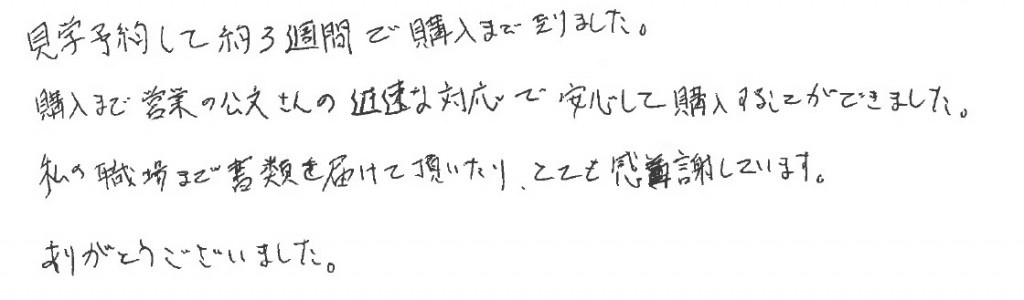 見学予約して約3週間で購入まで到りました。
購入まで営業の公文さんの迅速な対応で安心して購入することができました。
私の職場まで書類を届けて頂いたり、とても感謝しています。
ありがとうございました。